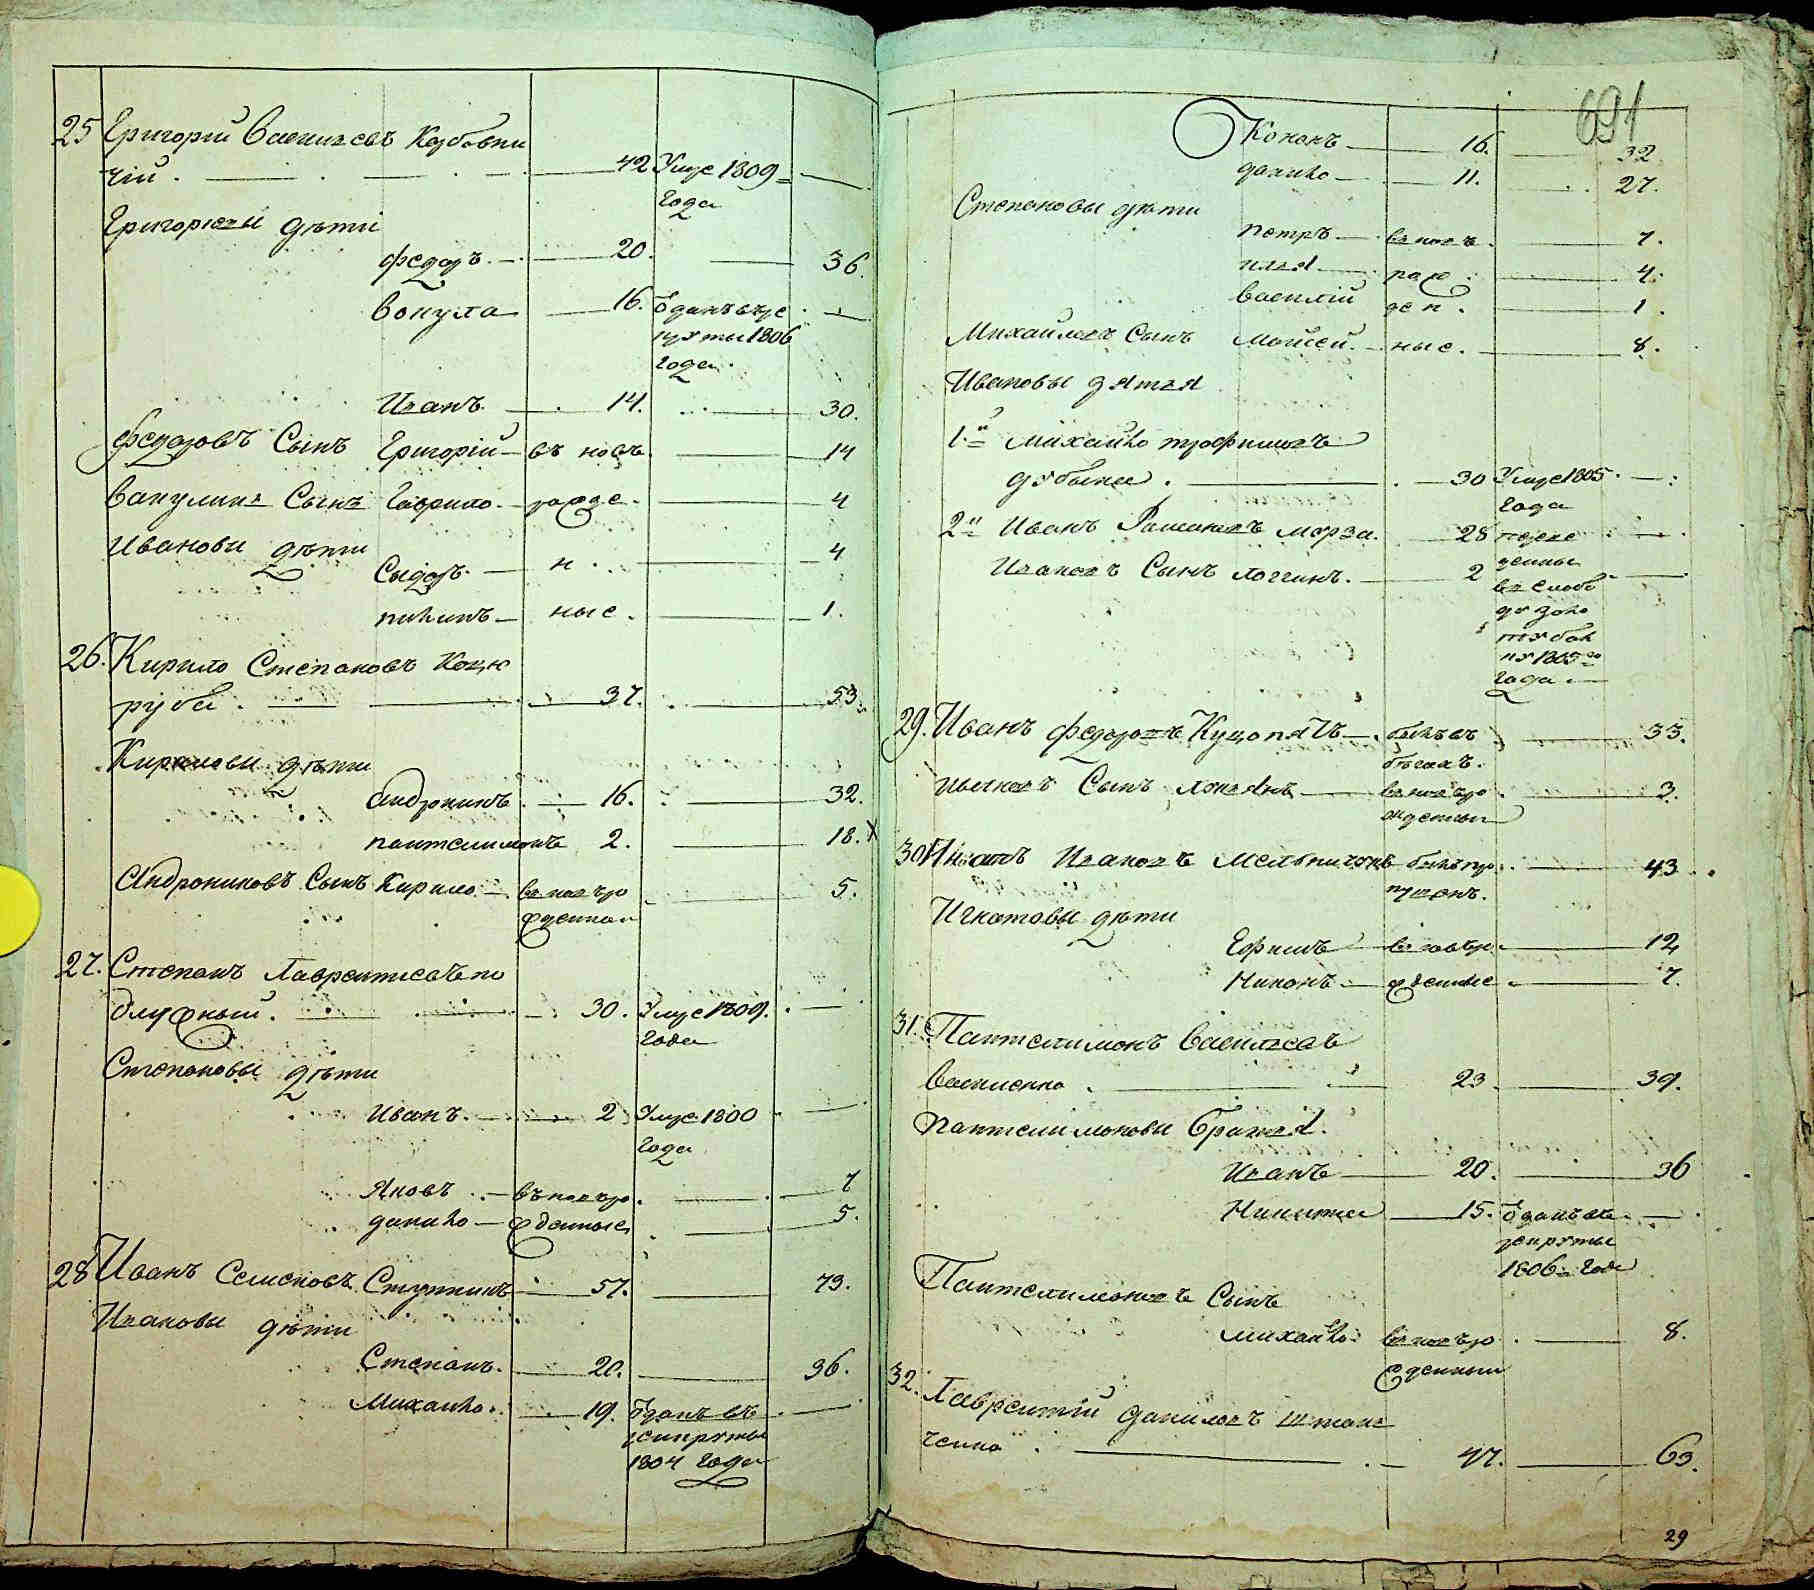 25 Григорій Васильевъ Карбовни
чій. 42 Умре 1809
года
Григорьевы дѣти
Федоръ. 20. 36.
Вакула 16. Отданъ въ ре
круты 1806
года.
Иванъ. 14. 30.
Федоровъ Сынъ Григорій въ новъ 14
Вакулинъ Сынъ Гаврило. рожде. 4
Ивановы дѣти
Сидоръ. н. 4
ныe. 1.
26. Кирило Степановъ Коцю
руба. 37. 53.
Кириловы дѣти
Андроникъ. 16. 32.
Пантелимонъ 2. 18.
Андрониковъ Сынъ Кирило въ новъ ро 5.
жденный
27. Степанъ Лаврентіевъ по
30. Умре 1809.
года
Степановы дѣти
Иванъ. 2 Умре 1800
года
Яковъ въ новъ ро 7
данило жденные 5.
28 Иванъ Семеновъ 57. 73.
Ивановы дѣти
Степанъ. 20. 36.
Михайло. 19. Отданъ въ
рекруты
1804 года
691
Кононъ 16. 32.
данило 11. 27.
Степановы дѣти
Петръ въ новъ 7.
Илья рож 4.
Василій ден. 1.
Михайловъ Сынъ Мойсей. ные. 8.
Ивановы зятья
1й Михайло Трофимовъ
дубына. 30 Умре 1805.
года
2й Иванъ Романовъ Мороза. 28 пере
ведены
Ивановъ Сынъ Логгинъ. 2
въ слобо
ду
1805го
года.
29. Иванъ Федоровъ Куцопятъ. былъ въ 33.
бѣгахъ.
Ивановъ Сынъ въ новъ ро 3.
жденный
30 Игнатъ Ивановъ Мельниченко былъ про 43.
пущенъ.
Игнатовы дѣти
Ефимъ въ новъ ро 12
Никонъ жденные 7.
31. Пантелимонъ Васильевъ
Василенко. 23. 39.
Пантелимоновы братья.
Иванъ 20. 36
Никита 15. Отданъ въ
рекруты
1806 года
Пантелимоновъ Сынъ
Михайло. въ новъ ро 8.
жденный
32. Лаврентій Даниловъ
ченко. 47. 63.
29